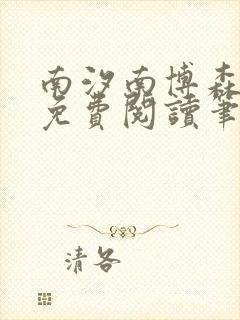 南汐南博森
免費閱讀筆
清各